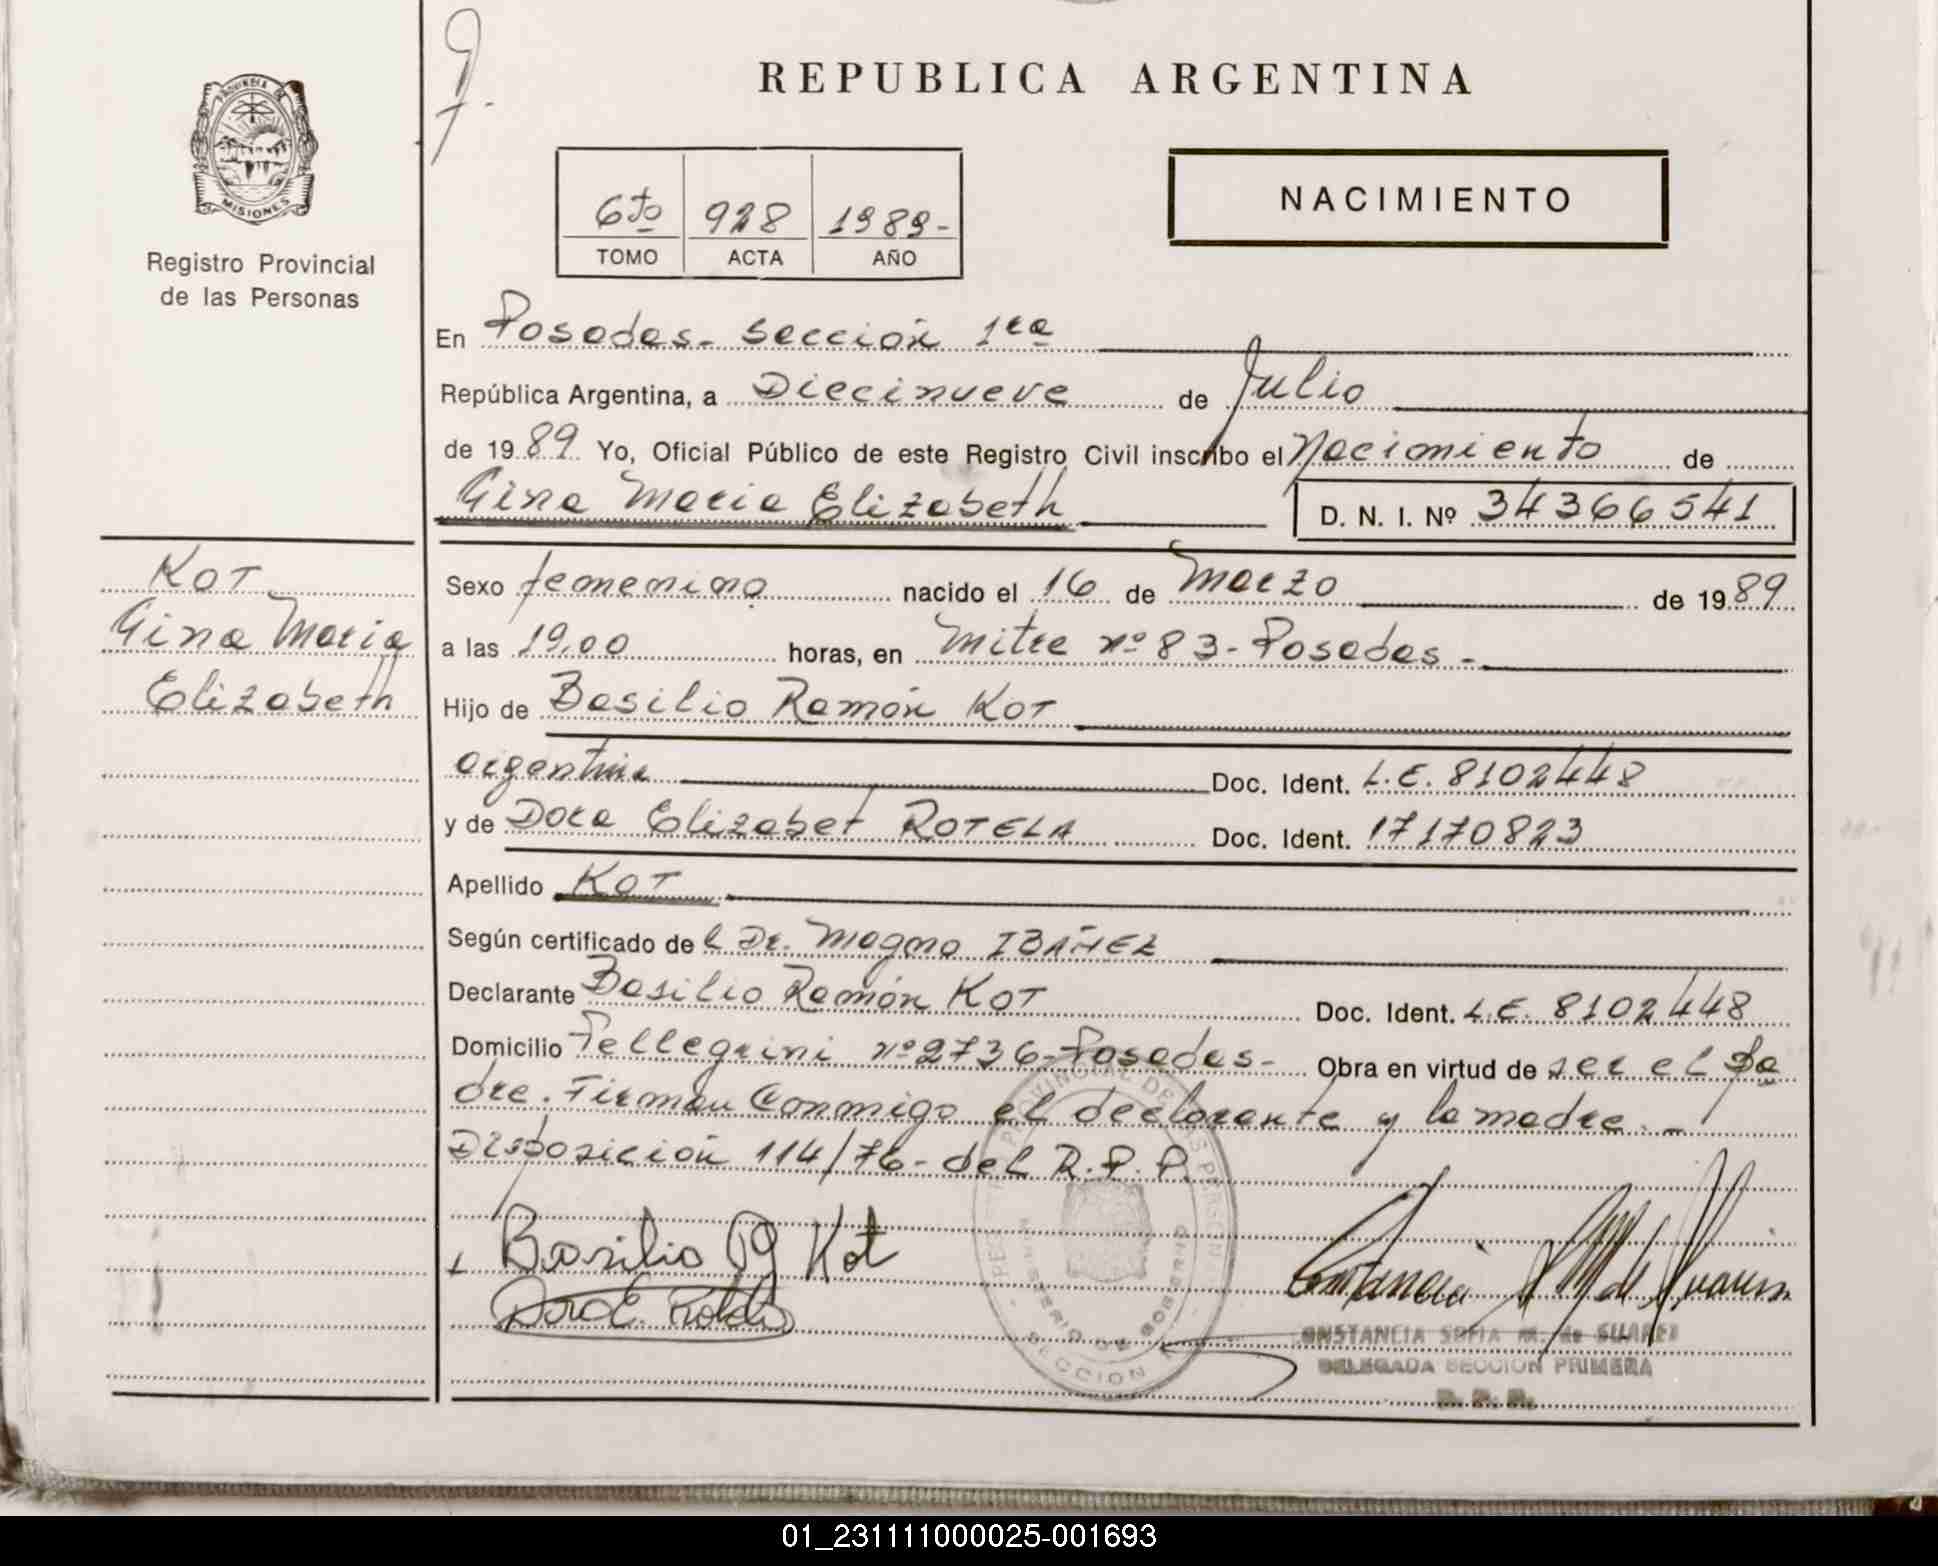 REPUBLICA ARGENTINA
PROVINCIA DE
MISIONES
Registro Provincial
de las Personas
6to 928 1989-
TOMO ACTA AÑO
NACIMIENTO
En Posadas- Sección 1ra
República Argentina, a Diecinueve de Julio
de 1989 Yo, Oficial Público de este Registro Civil inscribo el Nacimiento de
Gina Maria Elizabeth D. N. I. Nº 34366541
KOT
Gina Maria
Elizabeth
Sexo femenino nacido el 16 de Marzo de 1989
a las 19,00 horas, en Mitre nº 83-Posadas-
Hijo de Basilio Ramón KOT
argentina Doc. Ident. L.E. 8102448
y de Dora Elizabet ROTELA Doc. Ident. 17170823
Apellido KOT
Según certificado del Dr. Magno IBAÑEZ
Declarante Basilio Ramón KOT Doc. Ident. L.E. 8102448
Domicilio Pellegrini nº2736-Posadas- Obra en virtud de ser el Pa
dre. Firman Conmigo el declarante y la madre.-
Disposición 114/76-del R.P.P.
Basilio R Kot
Dora E. Rotela
MINISTERIO DE GOBIERNO
SECCION
CONSTANCIA SOFIA M. de SUAREZ
DELEGADA SECCION PRIMERA
R. P. P.
01_231111000025-001693